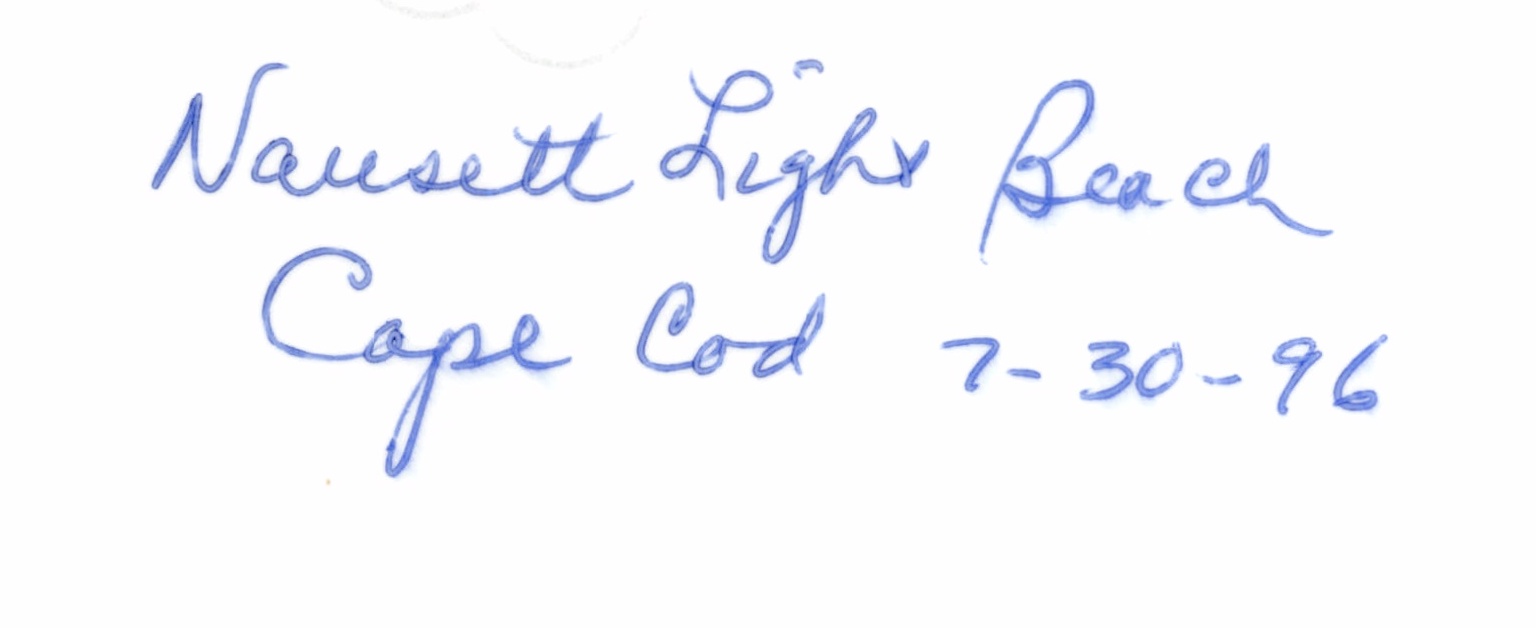 Nausett Light Beach
Cape Cod 7-30-96